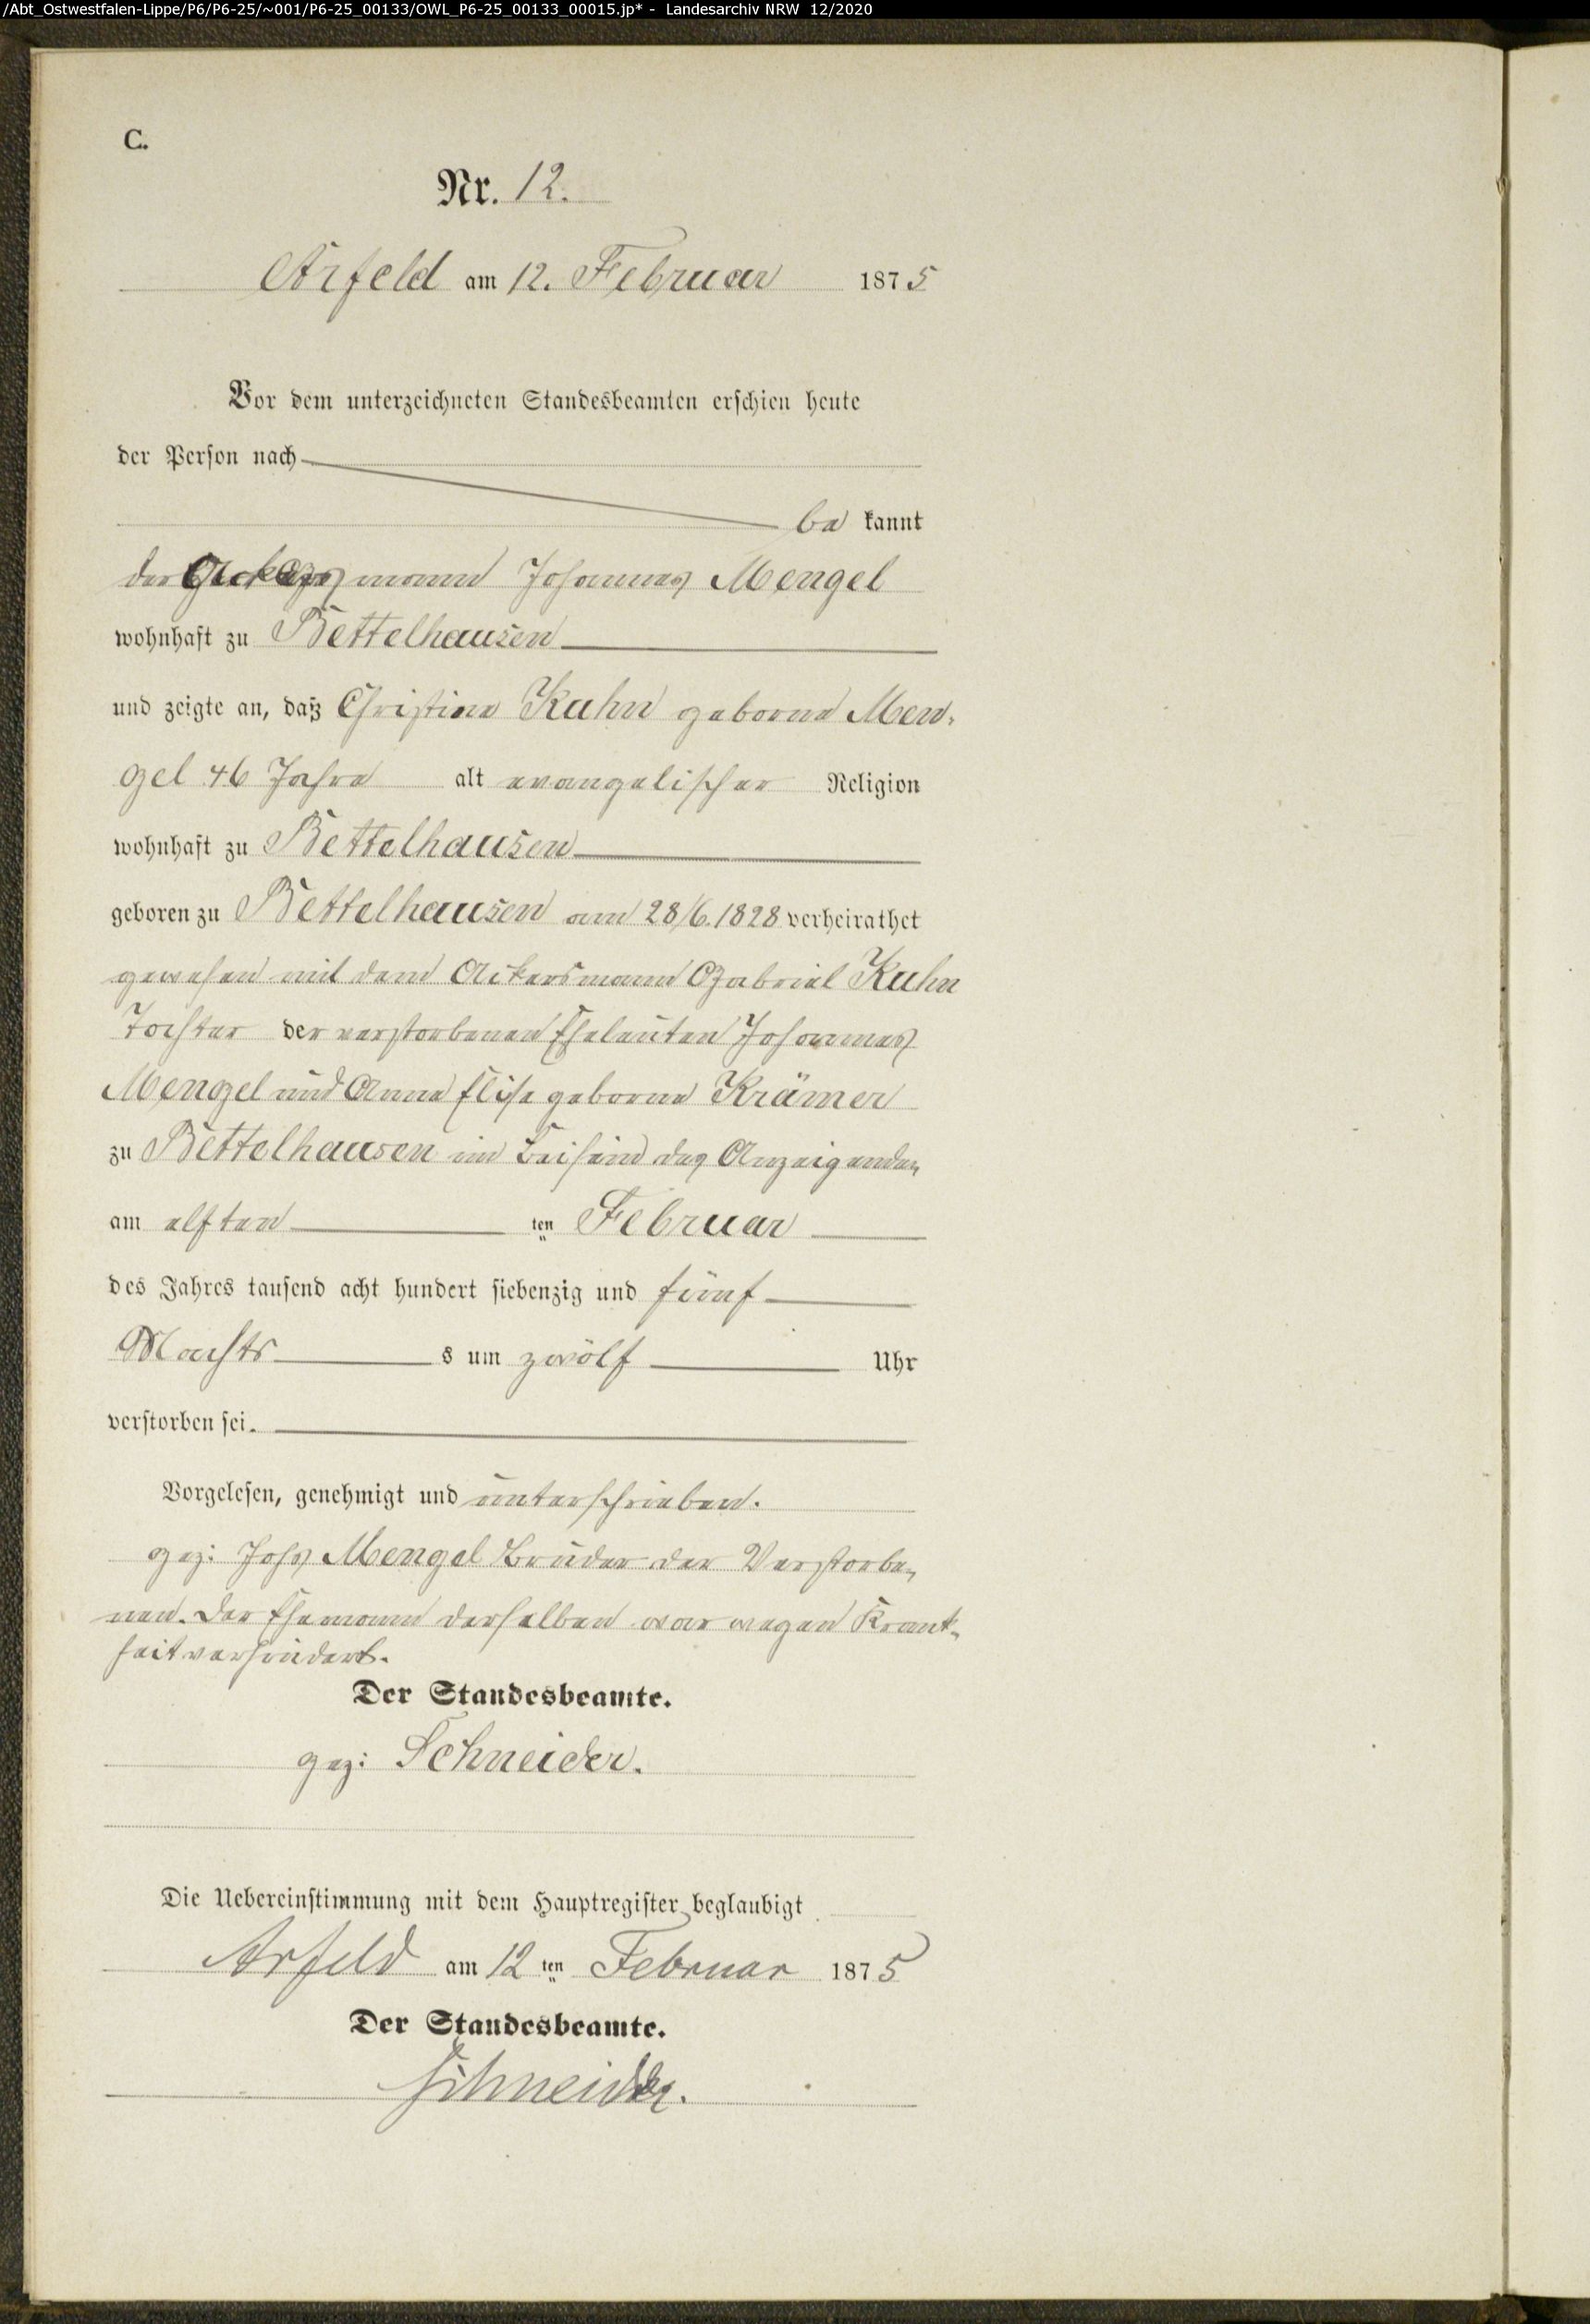 /Abt_Ostwestfalen-Lippe/P6/P6-25/~001/P6-25_00133/OWL_P6-25_00133_00015.jp* - Landesarchiv NRW 12/2020
C.
Nr. 12.
Arfeld am 12. Februar 1875
Vor dem unterzeichneten Standesbeamten erschien heute
der Person nach
be kannt
der Ackersmann Johannes Mengel
wohnhaft zu Bettelhausen
und zeigte an, daß Christine Kuhn geborne Men-
gel 46 Jahre alt evangelischer Religion
wohnhaft zu Bettelhausen
geboren zu Bettelhausen am 28/6. 1828 verheirathet
gewesen mit dem Ackersmann Gabriel Kuhn
Tochter der verstorbenen Eheleuten Johannes
Mengel und Anna Elise geborne Krämer
zu Bettelhausen im Beisein des Anzeigenden
am elften ten Februar
des Jahres tausend acht hundert siebenzig und fünf
Nachts s um zwölf Uhr
verstorben sei.
Vorgelesen, genehmigt und unterschrieben.
gez: Johs Mengel Bruder der Verstorbe-
nen. Der Ehemann derselben war wegen Krank-
heit verhindert.
Der Standesbeamte.
gez: Schneider.
Die Uebereinstimmung mit dem Hauptregister beglaubigt
Arfeld am 12 ten Februar 1875
Der Standesbeamte.
Schneider.